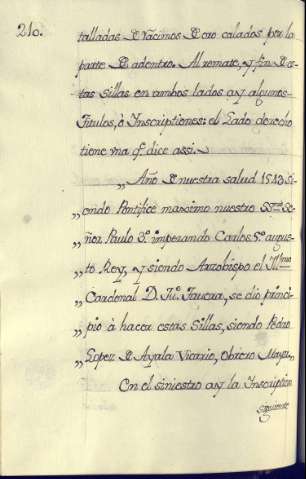 210.
talladas de racimos de oro calados por la
parte de adentro. Al remate, y fin de es-
tas sillas en ambos lados ay algunos
Titulos, ò Inscriptiones: el Lado derecho
tiene una q.e dice assi.
„ Año de nuestra salud 1543 si-
„ endo Pontifice maximo nuestro SS.mo Se-
„ ñor Paulo 3.º imperando Carlos 5.º augus-
„ to Rey, y siendo Arzobispo el Il.mo
„ Cardenal D. Ju.º Tavera, se diò princi-
„ pio à hacer estas Sillas, siendo Pedro
„ Lopez de Ayala Vicario, Obrero Mayor.
En el siniestro ay la Inscription
siguiente